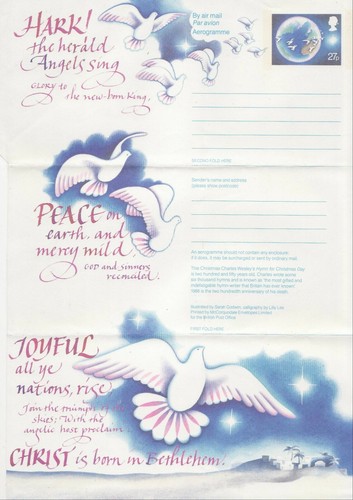 HARK!
the herald
Angels sing
GLORY to
the new-born King,
By air mail
Par avion
Aerogramme
27p
SECOND FOLD HERE
Sender's name and address
(please show postcode)
PEACE on
earth, and
mercy mild,
GOD and sinners
reconciled.
An aerogramme should not contain any enclosure;
if it does, it may be surcharged or sent by ordinary mail.
This Christmas Charles Wesley's Hymn for Christmas Day
is two hundred and fifty years old. Charles wrote some
six thousand hymns and is known as 'the most gifted and
indefatigable hymn-writer that Britain has ever known'.
1988 is the two hundredth anniversary of his death.
Printed by McCorquodale Envelopes Limited
for the British Post Office
FIRST FOLD HERE
JOYFUL
all ye
nations, rise,
Join the triumph of the
skies; With the
angelic host proclaim:
CHRIST is born in Bethlehem.